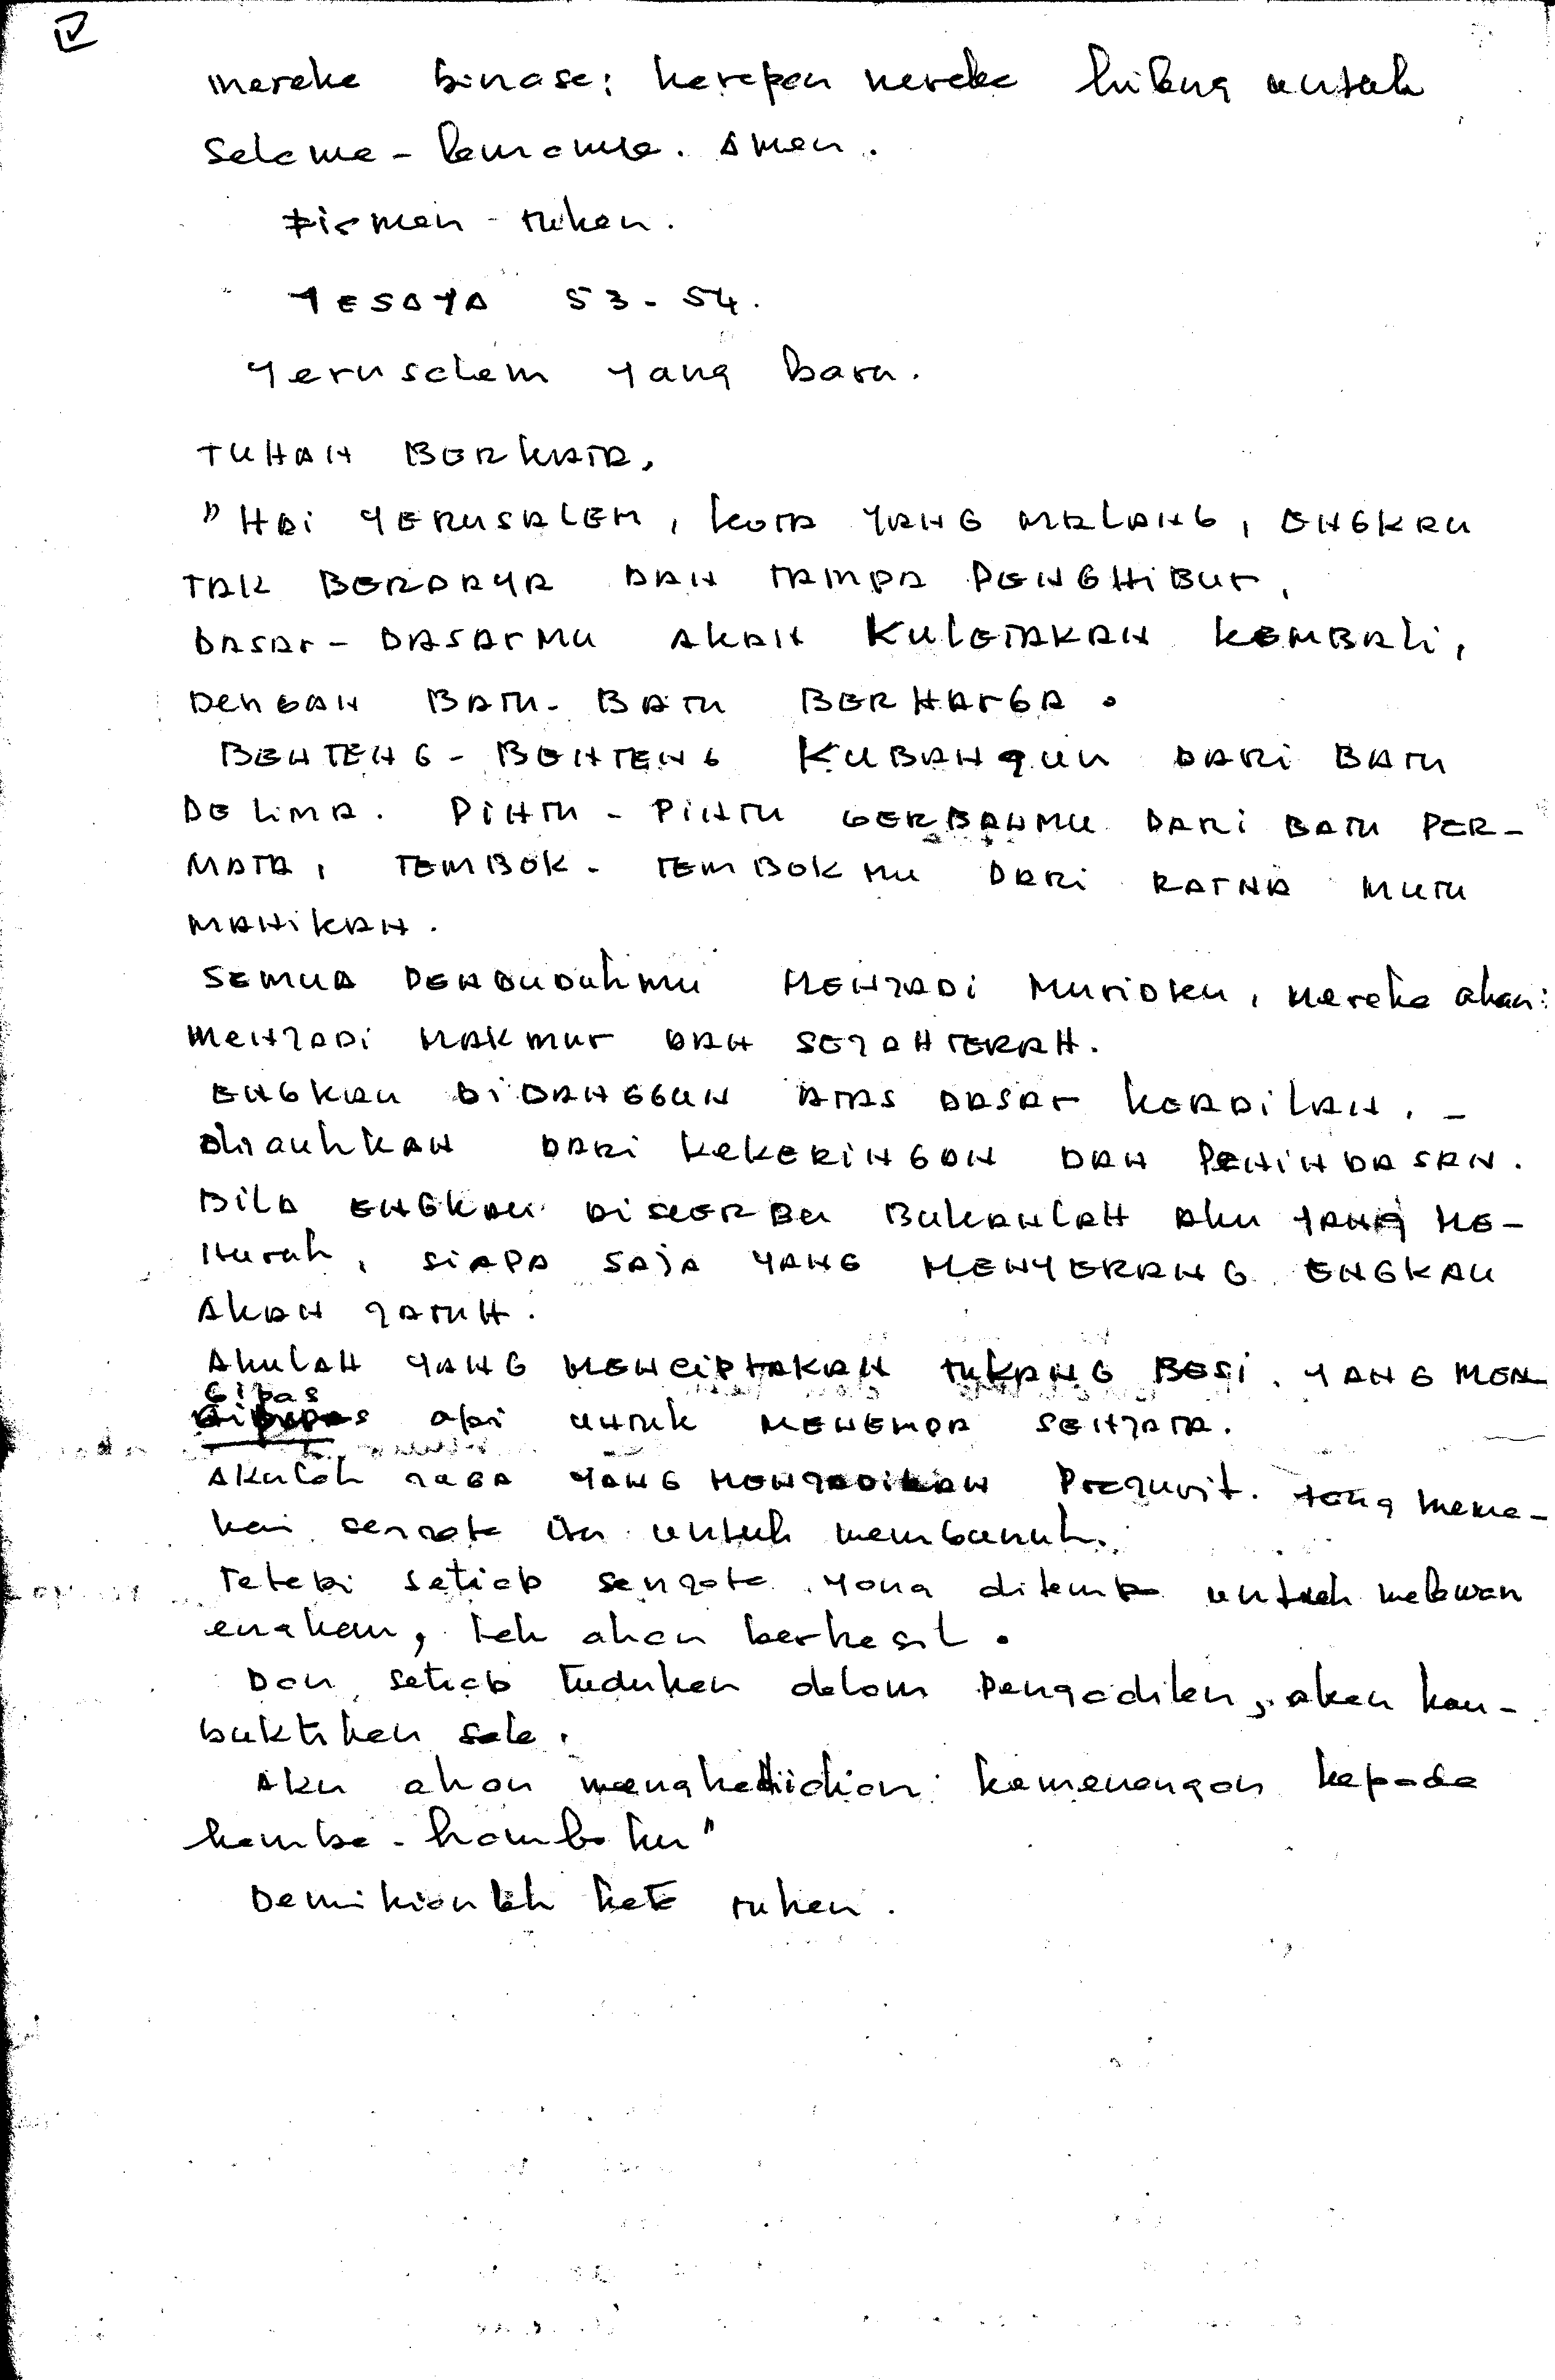 mereka binasa; harapan mereka hilang untuk
selama-lamanya. Amen.
Firman-Tuhan.
YESAYA 53-54.
Yerusalem yang baru.
TUHAN BERKATA,
"HAI YERUSALEM, KOTA YANG MALANG, ENGKAU
TAK BERDAYA DAN TAMPA PENGHIBUr,
DASAr-DASArMU AKAN KULETAKAN KEMBALI,
DENGAN BATU-BATU BERHArGA.
BENTENG-BENTENG KUBANgun DARI BATU
DELIMA. PINTU-PINTU GERBANMU DARI BATU PER-
MATA, TEMBOK-TEMBOKMU DARI RATNA MUTU
MANIKAN.
SEMUA PENDUDUhMU MENJADI MUriDKu, mereka akan:
MENJADI MAKMUr DAN SEJAHTERAH.
ENGKAU DIBANGGUN ATAS DASAr KEADILAN. -
dijauhKAN DARI KEKERINGAN DAN PENINDASAN.
BILA ENGKAU DISERBU BUKANLAH AKU YANG ME-
Nyuruh, SIAPA SAJA YANG MENYERANG ENGKAU
AKAN JATUH.
AKULAH YANG MENCIPTAKAN TUKANG BESI. YANG MEN
Gipas
api UNTUk MENEMPA SENJATA.
AKULah JUGA YANG MENJADIKAN Prejurit. yang mema-
kai senjata itu untuk membunuh.
Tetapi setiap senjata yang ditempa untuk melawan
engkau, tak akan berhasil.
Dan, setiap tuduhan dalam Pengadilan, akan kau-
buktikan sala.
Aku akan menghadiakan kemenangan kepada
hamba-hambaku"
Demikianlah kata Tuhan.